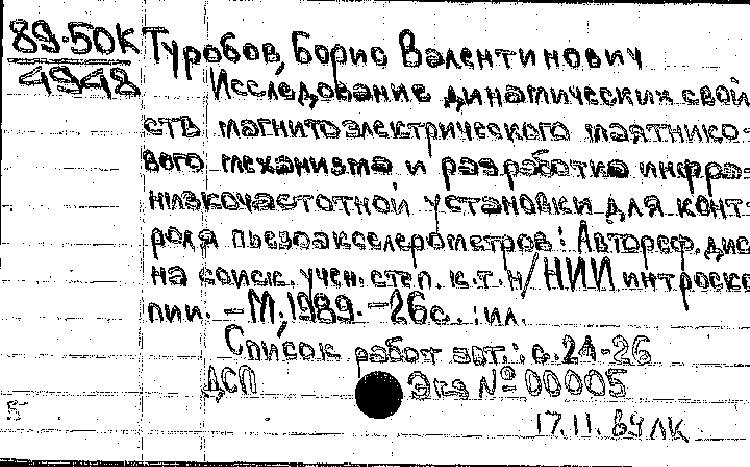 89-50К Туробов, Борис Валентинович
4948
Исследование динамических свой
ств магнитоэлектрического маятнико-
вого механизма и разработка инфра-
низкочастотной установки для конт-
роля пьезоакселерометров: Автореф. дис
на соиск. учен. степ. к.т.н/НИИ интроско
пии. – М., 1989. – 26с. : ил.
Список работ авт.: с. 24-26
ДСП Экз № 00005
5
17.11.89 ЛК